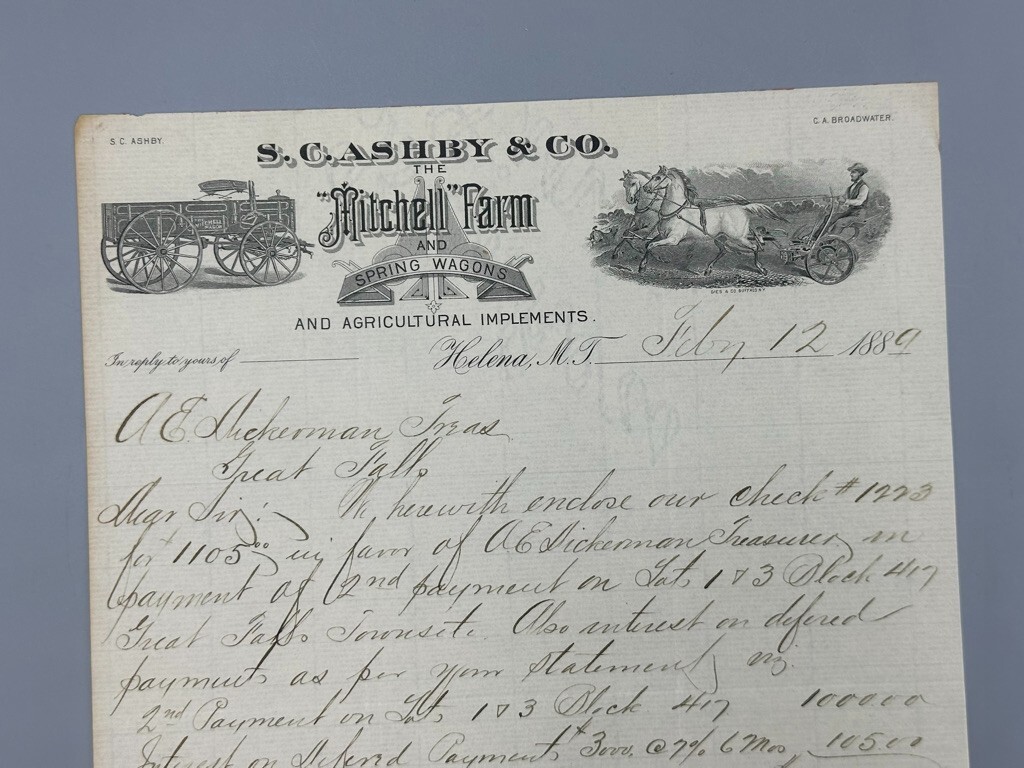 S. C. ASHBY.
C. A. BROADWATER.
S. C. ASHBY & CO.
THE
"Mitchell" Farm
AND
SPRING WAGONS
AND AGRICULTURAL IMPLEMENTS.
In reply to yours of
Helena, M.T. Feby 12 1889
A E Dickerman, Treas
Great Falls
Dear Sir:- We herewith enclose our check #1223
for $1105.00 in favor of A E Dickerman Treasurer in
payment of 2nd payment on Lots 1 & 3 Block 417
Great Falls Townsite. Also interest on defered
payments as per your statement, viz.
2nd Payment on Lots 1 & 3 Block 417 1000.00
Interest on Defered Payments $3000. @ 7% 6 Mos 105.00